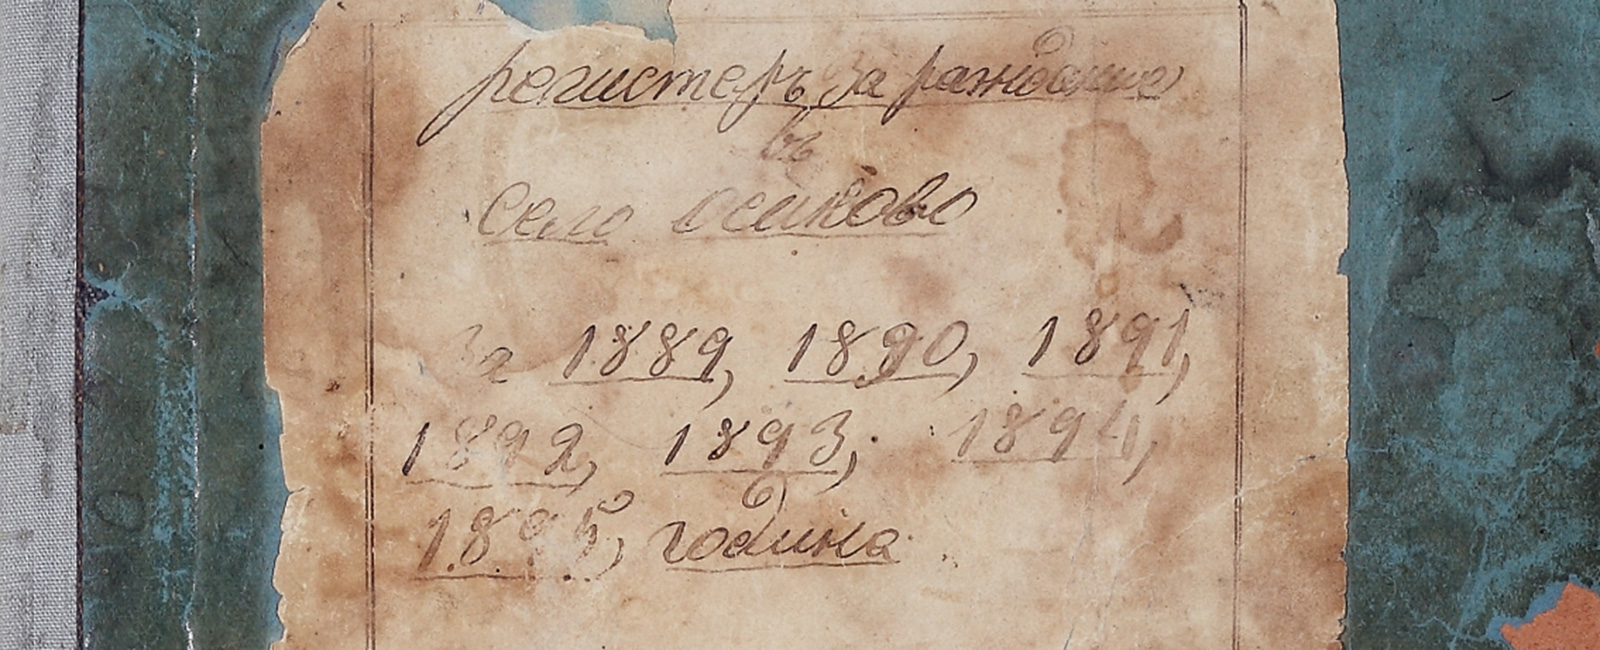 регистеръ за раждание
въ
село осиково
за 1889, 1890, 1891,
1892, 1893, 1894,
1895, година